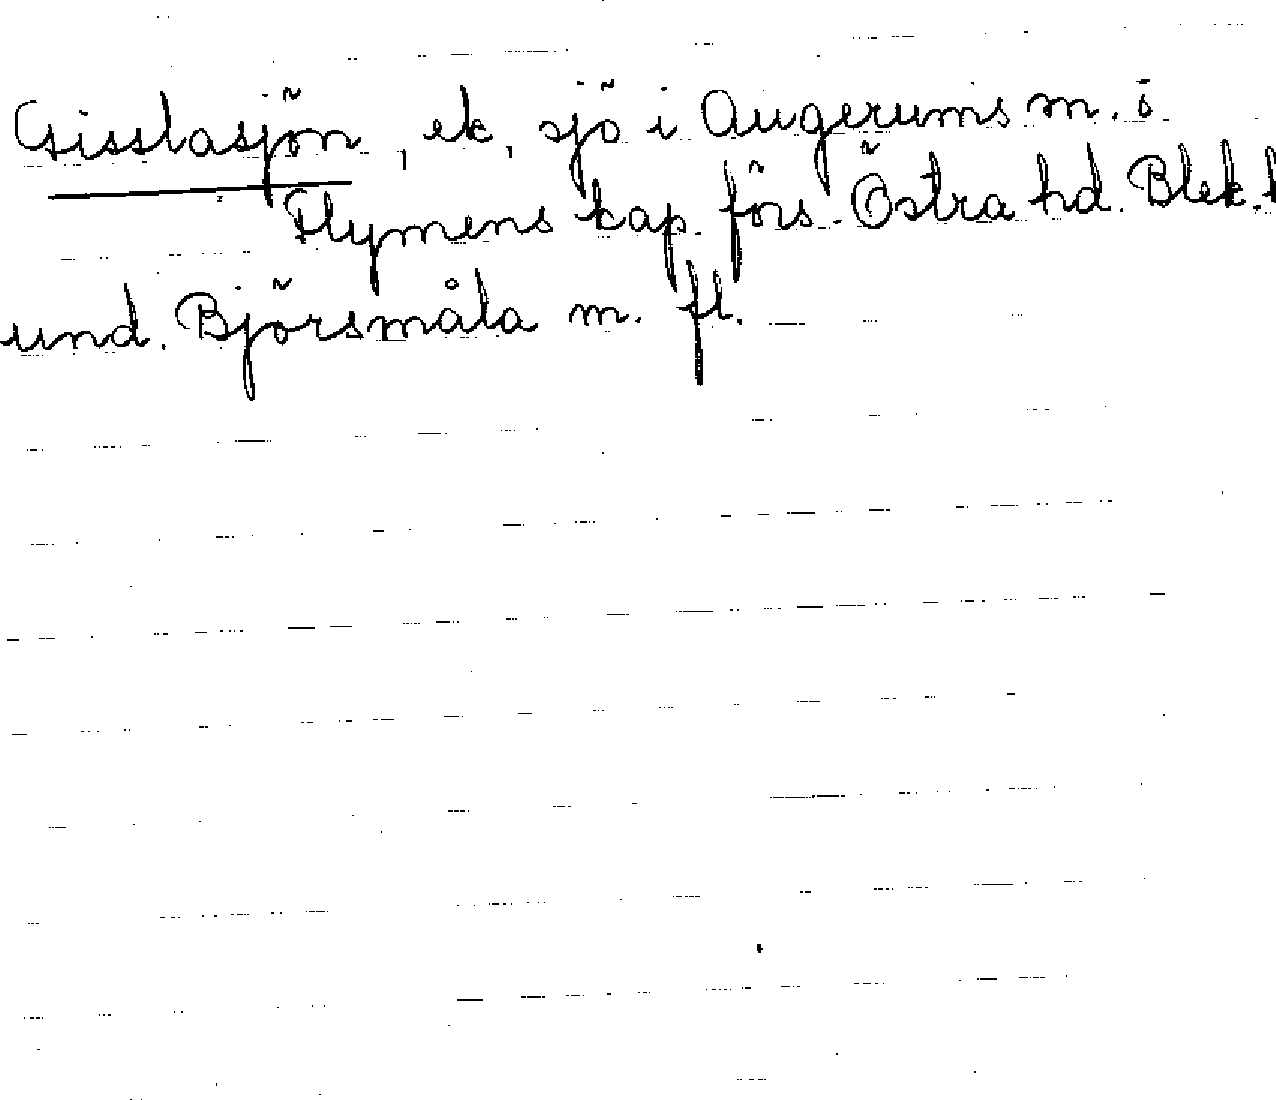 Gisslasjön, ek, sjö i Augerums m. o
Flymens kap. förs. Östra hd. Blek. l
und. Björsmåla m. fl.